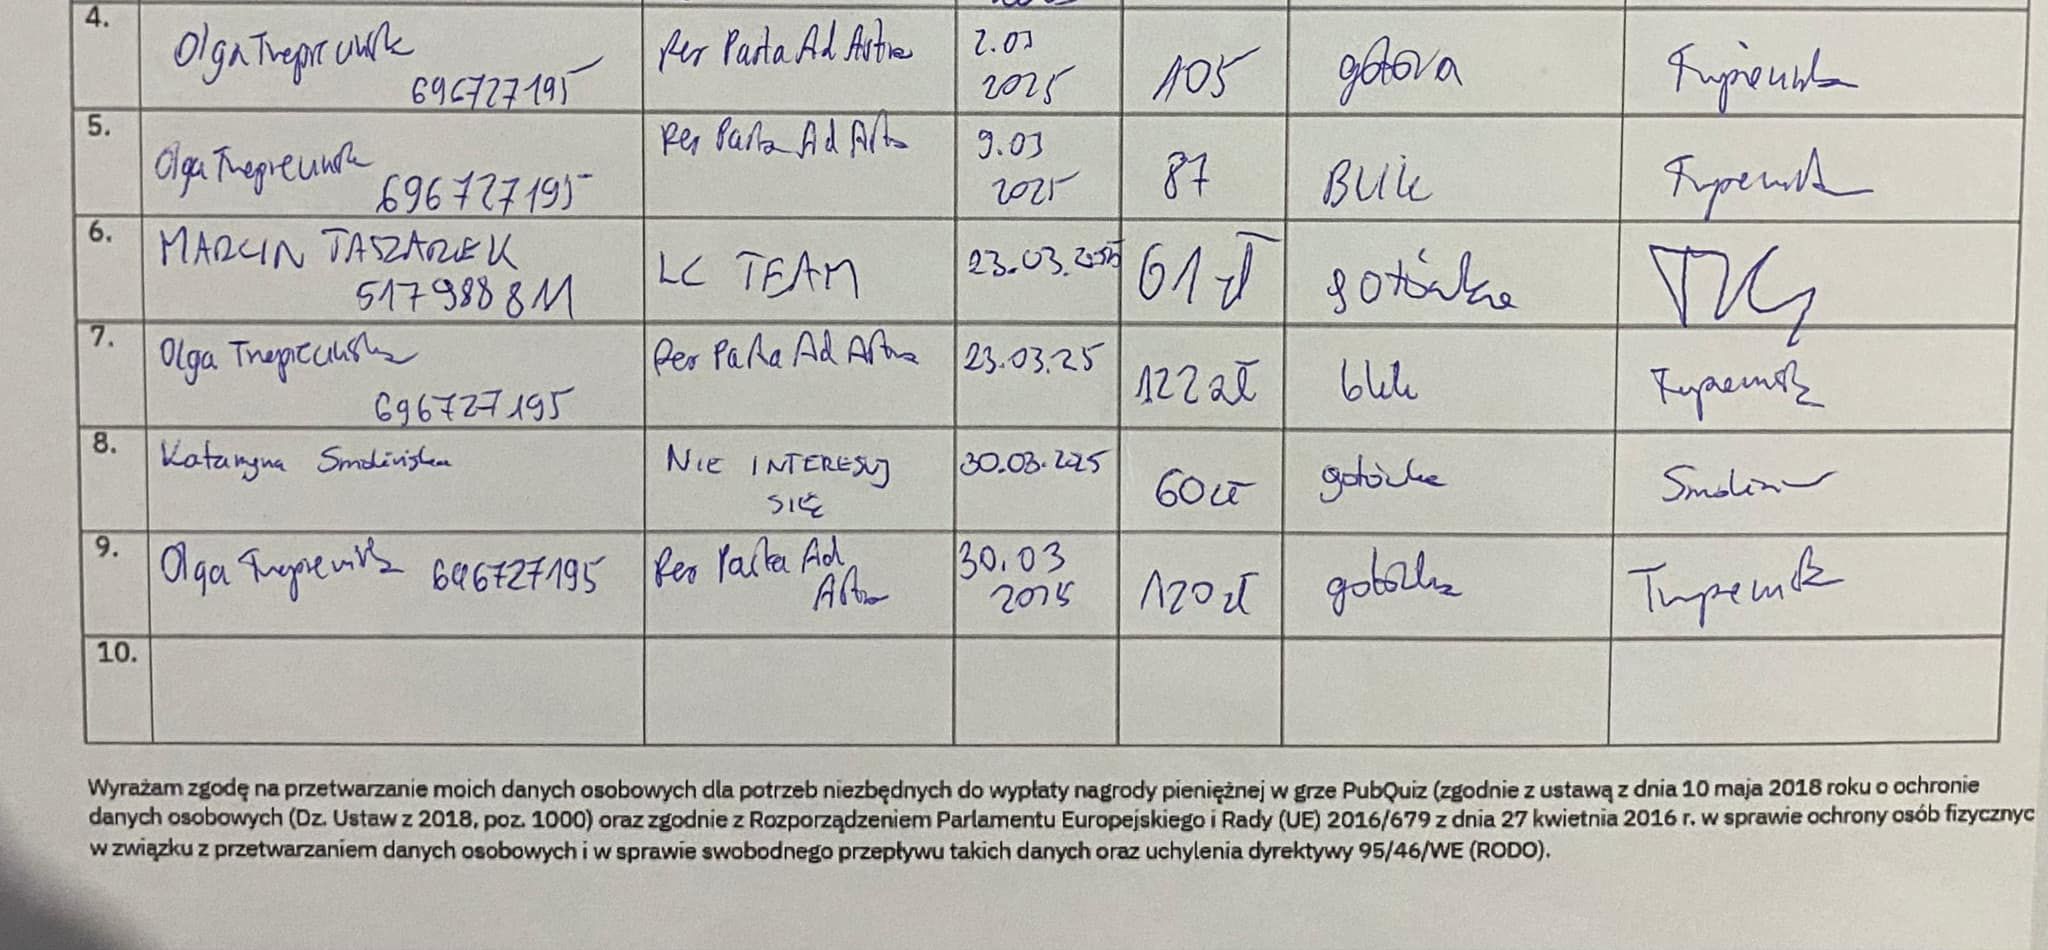 4.
Olga
696727195
Per Pasta Ad Astra
2.03
2025
105
gotova
5.
Olga
696727195
Per Pasta Ad Astra
9.03
2025
87
BLIK
6.
MARCIN TASZAREK
517988811
LC TEAM
23.03.2025
61 zł
gotówka
7.
Olga
696727195
Per Pasta Ad Astra
23.03.25
122 zł
blik
8.
Katarzyna Smolińska
NIE INTERESUJ
SIĘ
30.03.2025
60 zł
gotówka
9.
Olga 696727195
Per Pasta Ad
Astra
30.03
2025
120 zł
gotówka
10.
Wyrażam zgodę na przetwarzanie moich danych osobowych dla potrzeb niezbędnych do wypłaty nagrody pieniężnej w grze PubQuiz (zgodnie z ustawą z dnia 10 maja 2018 roku o ochronie
danych osobowych (Dz. Ustaw z 2018, poz. 1000) oraz zgodnie z Rozporządzeniem Parlamentu Europejskiego i Rady (UE) 2016/679 z dnia 27 kwietnia 2016 r. w sprawie ochrony osób fizycznyc
w związku z przetwarzaniem danych osobowych i w sprawie swobodnego przepływu takich danych oraz uchylenia dyrektywy 95/46/WE (RODO).